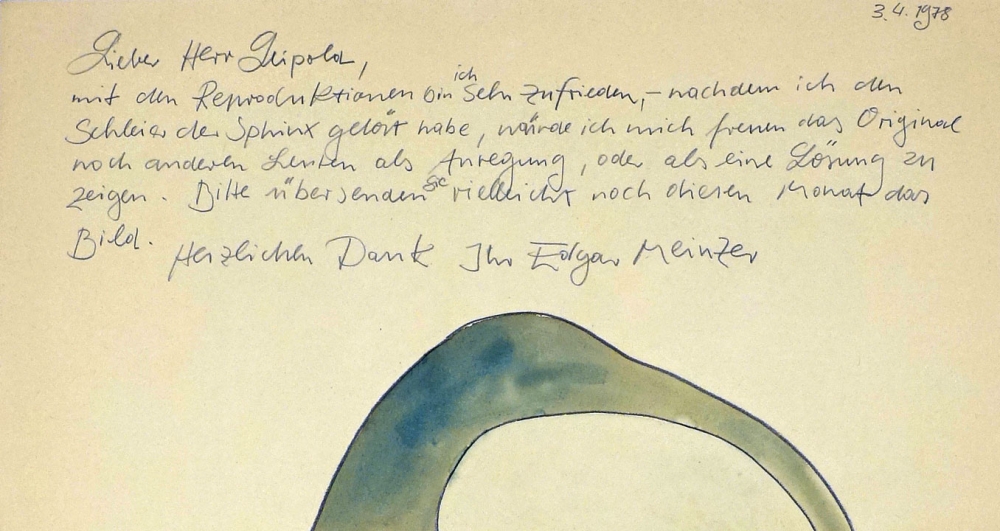 3.4.1978
Lieber Herr Leipold,
mit den Reproduktionen bin ich sehr zufrieden, - nachdem ich den
Schleier der Sphinx gelöst habe, würde ich mich freuen das Original
noch anderen Leuten als Anregung, oder als eine Lösung zu
zeigen. Bitte übersenden Sie vielleicht noch diesen Monat das
Bild.
Herzlichen Dank Ihr Edgar Meinzer